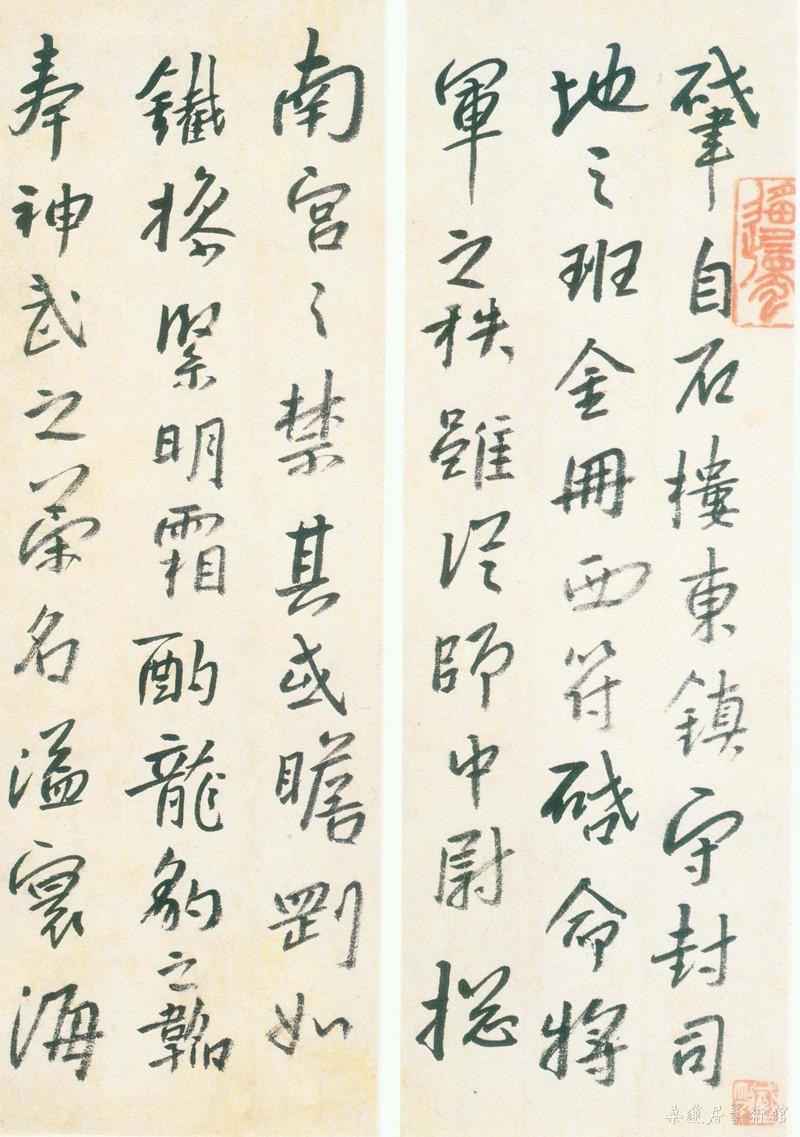 肇自石樓東鎮守封司
地之班金冊西符啓命將
軍之秩雖從師中尉摠
南宮之禁其或瞻罰如
鐵操緊明霜酌龍豹之韜
奉神武之榮名溢寰海
桑蓮居藝術館